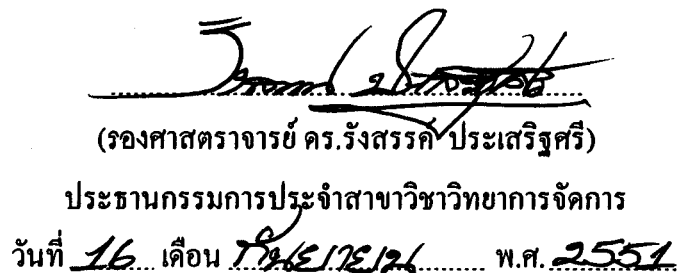 (รองศาสตราจารย์ ดร.รังสรรค์ ประเสริฐศรี)
ประธานกรรมการประจำสาขาวิชาวิทยาการจัดการ
วันที่ 16 เดือน กันยายน พ.ศ. 2551